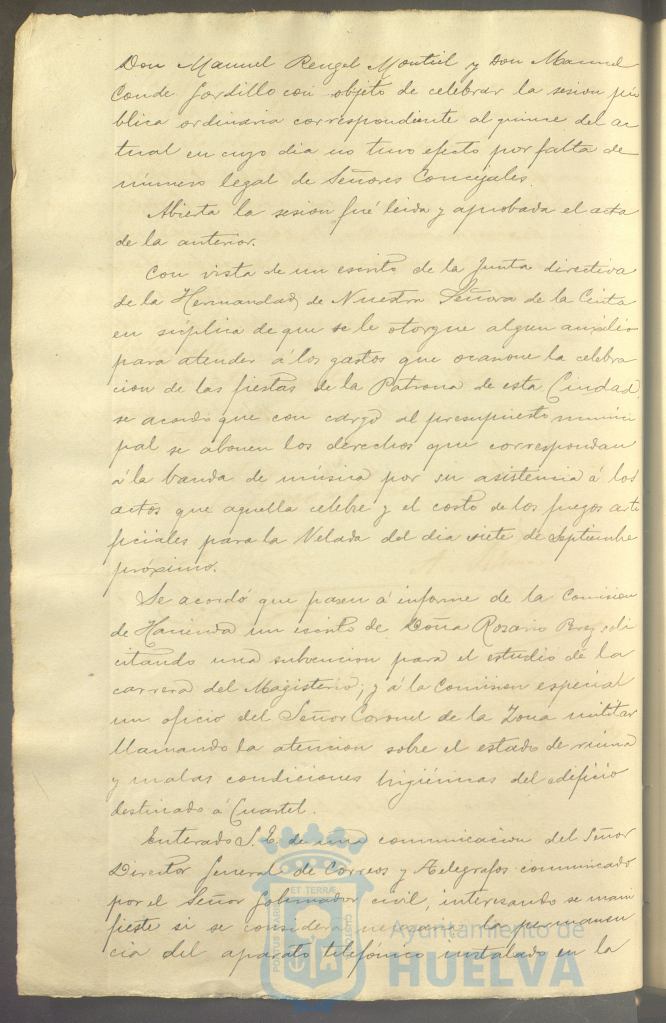 Don Manuel Rengel Montiel y Don Manuel
Conde Gordillo con objeto de celebrar la sesion pú
blica ordinaria correspondiente al quince del ac
tual en cuyo dia no tuvo efecto por falta de
número legal de Señores Concejales.
Abierta la sesion fué leida y aprobada el acta
de la anterior.
Con vista de un escrito de la Junta directiva
de la Hermandad de Nuestra Señora de la Cinta
en súplica de que se le otorgue algun auxilio
para atender á los gastos que ocasione la celebra
cion de las fiestas de la Patrona de esta Ciudad,
se acordó que con cargo al presupuesto munici
pal se abonen los derechos que correspondan
á la banda de música por su asistencia á los
actos que aquella celebre y el costo de los fuegos arti
ficiales para la Velada del dia siete de Septiembre
próximo.
Se acordó que pasen á informe de la Comision
de Hacienda un escrito de Doña Rosario soli
citando una subvencion para el estudio de la
carrera del Magisterio; y á la Comision especial
un oficio del Señor Coronel de la Zona militar
llamando la atencion sobre el estado de ruina
y malas condiciones higiénicas del edificio
destinado á Cuartel.
Enterado S. E. de una comunicacion del Señor
Director General de Correos y Telégrafos comunicado
por el Señor Gobernador civil, interesando se mani
fieste si se considera necesaria la permanen
cia del aparato telefónico instalado en la
PORTUS MARIS ET TERRÆ CUSTODIA
Ayuntamiento de
HUELVA